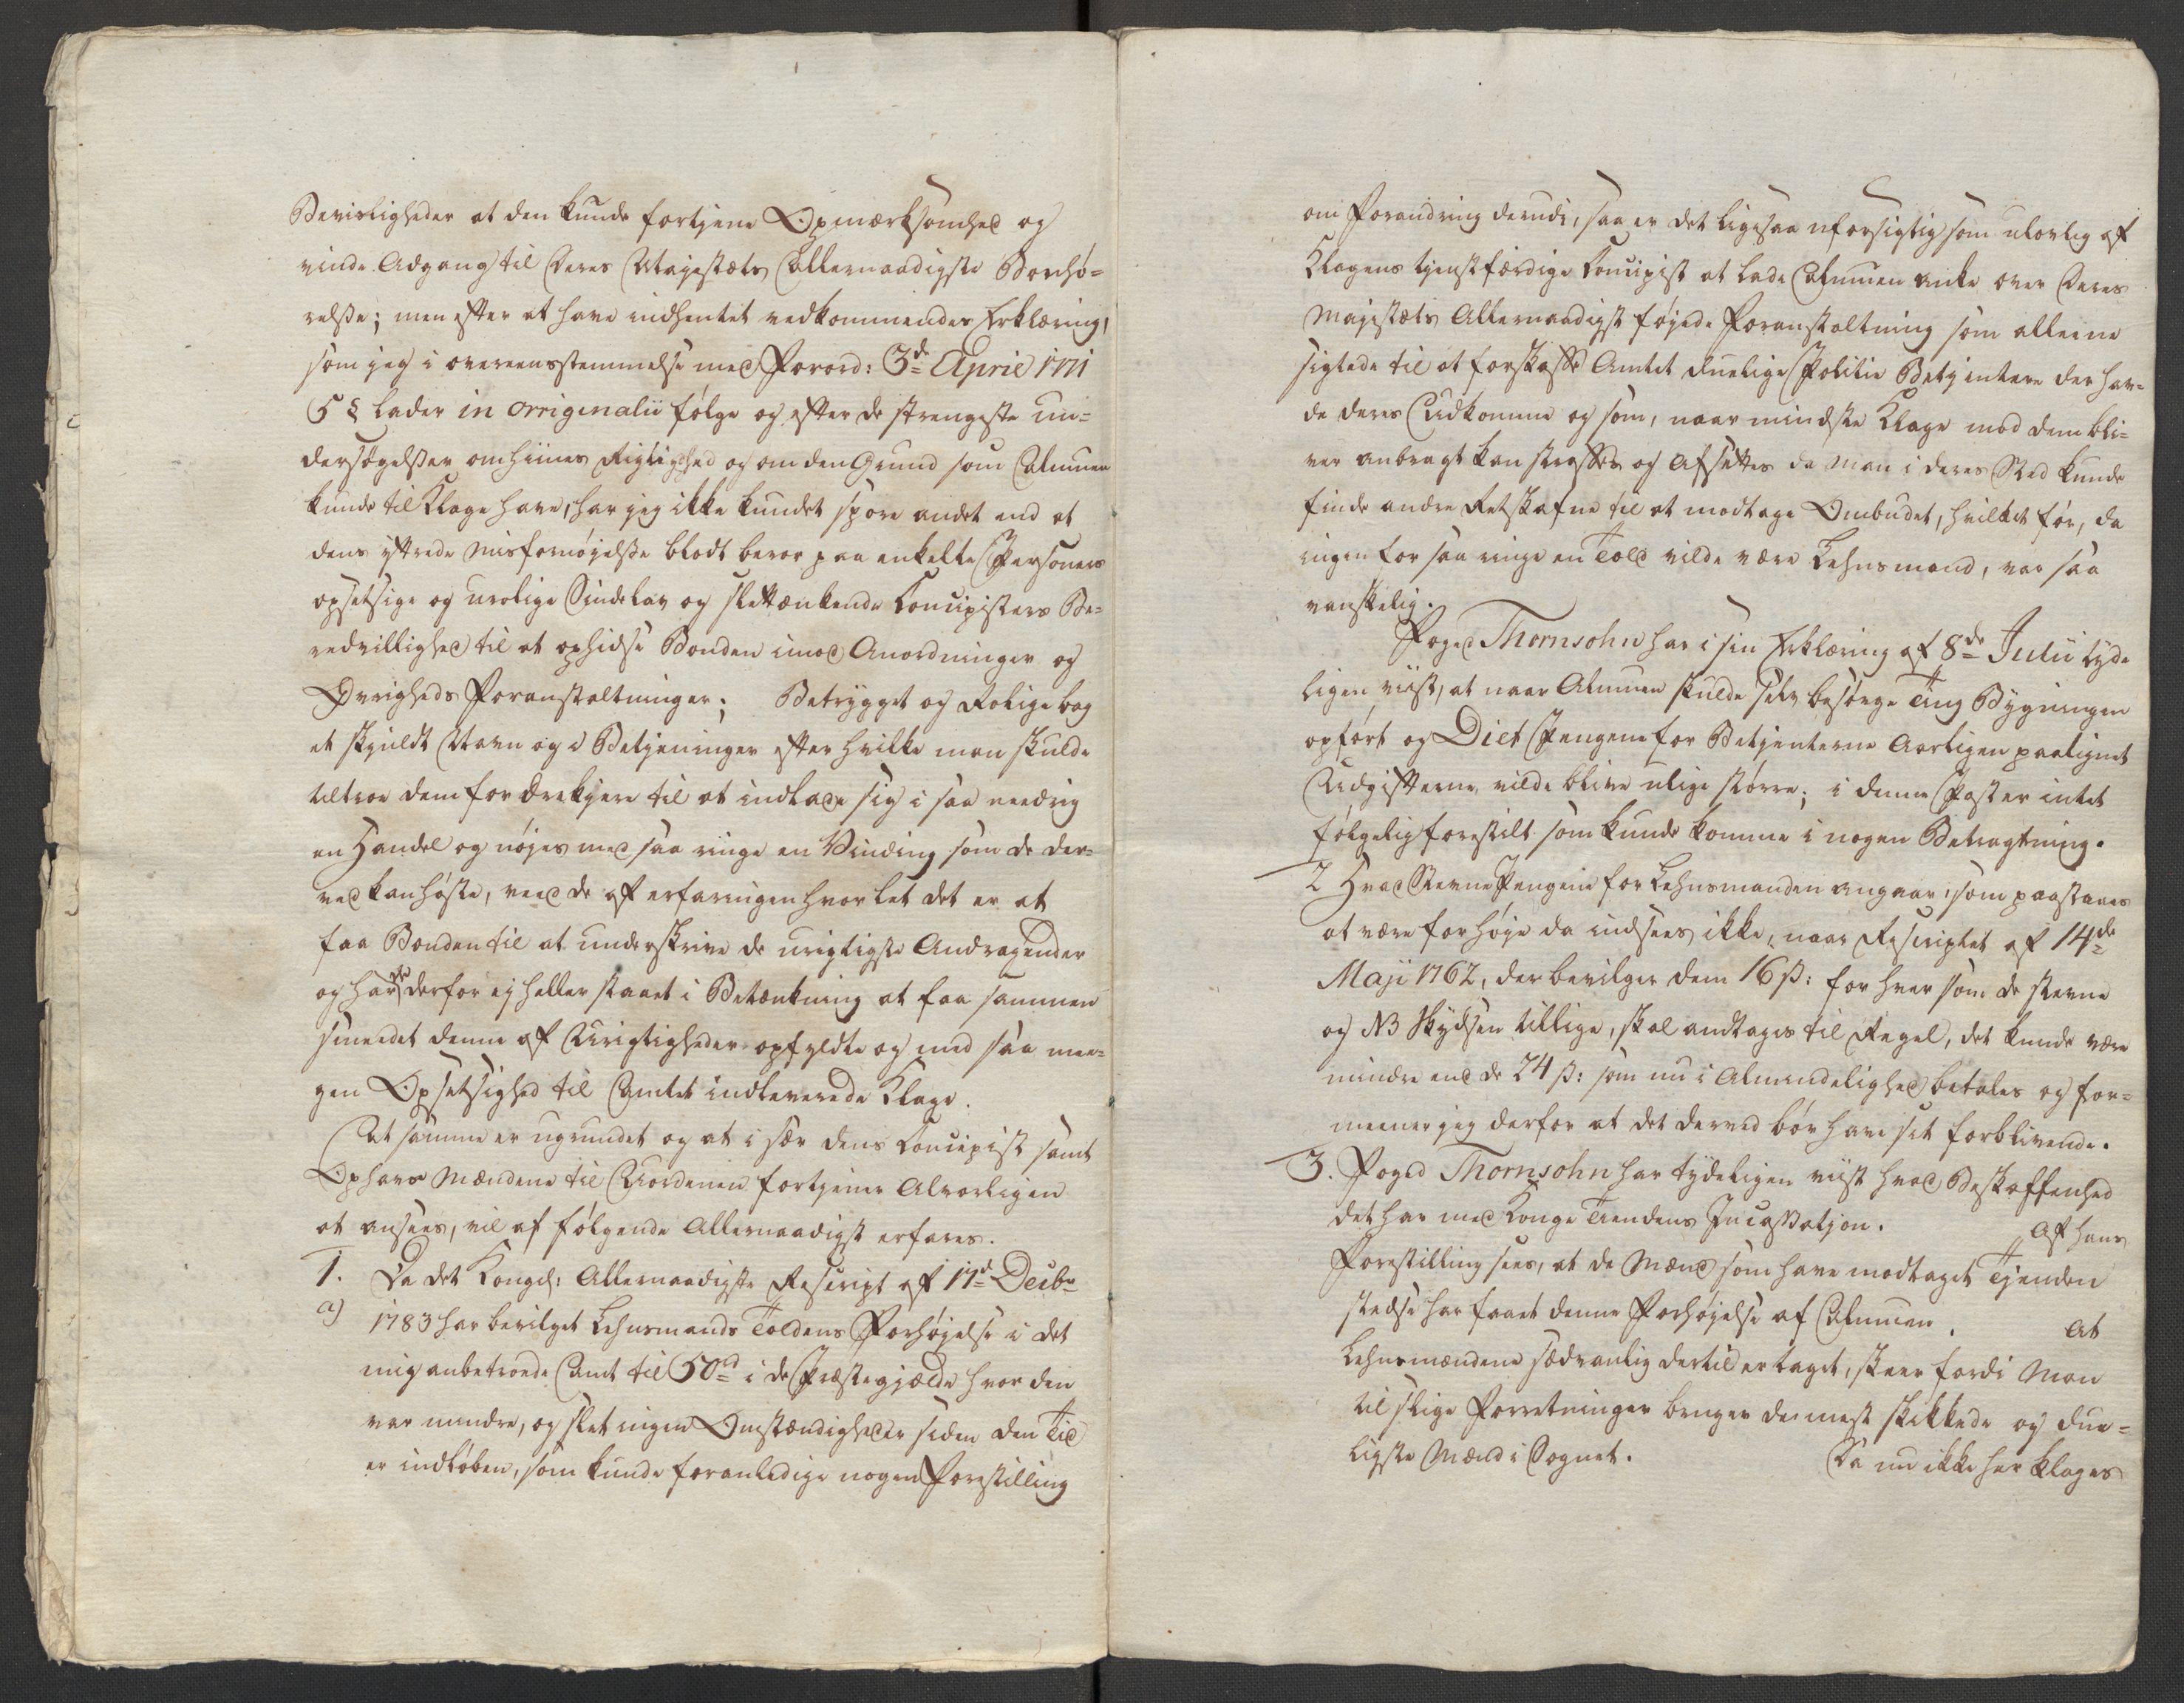 Bevisligheder at den kunde fortjene Opmærksomhed og
vinde Adgang til Deres Majestæts Allernaadigste Bønhø=
relse; men efter at have indhentet vedkommendes Erklæring,
som jeg i overeensstemmelse med Forord: 3de April 1771
5 § lader in originalii følge og efter de strengeste Un=
dersøgelser om hiines Rigtighed og om den Grund som Almuen
kunde til Klage have, har jeg ikke kundet spore andet end at
dens yttrede Misfornøjelse blodt beroer paa enkelte Personers
opsetsige og urolige Sindelav og slettænkende Concipisters Be=
redvillighed til at ophidse Bonden imod Anordninger og
Øvrigheds Foranstaltninger; Betrygget og Rolige bag
et skjuldt Navn og i Betjeninger efter hvilke man skulde
tiltroe dem for ærekjere til at indlade sig i saa needrig
en Handel og nøjes med saa ringe en Vinding som de der=
ved kan høste, veed de af erfaringen hvor let det er at
faa Bonden til at underskrive de urigtigste Andragender
og har de derfor ej heller staaet i Betænkning at faa sammen
smeedet denne af Urigtigheder opfyldte og med saa mee=
gen Opsetsighed til Amtet indleverede Klage.
At samme er ugrundet og at i sær dens Concipist samt
Ophavs Mændene til Uordenen fortjener Alvorligen
at ansees, vil af følgende Allernaadigst erfares.
1. Da det Kongel: Allernaadigste Rescript af 17d Decbr
a) 1783 har bevilget Lehnsmands Toldens Forhøjelse i det
mig anbetroede Amt til 50d i de Præstegjælde hvor den
var mindre, og slet ingen Omstændigheder siden den Tid
er indløben, som kunde foranledige nogen Forestilling
om Forandring derudi, saa er det ligesaa uforsigtig som ulovlig af
Klagens tjenstfærdige Concipist at lade Almuen anke over Deres
Majestæts Allernaadigst føjede Foranstaltning som alleene
sigtede til at forskaffe Amtet duelige Politie Betjentere der hav=
de deres Udkomme og som, naar mindste Klage mod dem bli=
ver anbragt kan straffes og afsættes da man i deres Sted kunde
finde andre Retskafne til at modtage Ombudet, hvilket før, da
ingen for saa ringe en Told vilde være Lehnsmand, var saa
vanskelig.
Foged Thornsohn har i sin Erklæring af 8de Julii tyde
ligen viist, at naar Almuen skulde selv besørge Ting Bygningen
opført og Diet Pengene for Betjenterne Aarligen paalignet
Udgifterne vilde blive ulige større; i denne Post er intet
følgelig forestilt som kunde komme i nogen Betragtning.
2 Hvad Stevne Pengene for Lehnsmanden angaar, som paastaaes
at være for høje da indsees ikke, naar Rescriptet af 14de
Maji 1762, der bevilger dem 16 ß: for hver som de stevne
og NB Skydsen tillige, skal andtages til Regel, det kunde være
mindre end de 24 ß: som nu i Almindelighed betales og for=
meener jeg derfor at det derved bør have sit forblivende.
3. Foged Thornsohn har tydeligen viist hvad Beskaffenhed
det har med Konge Tiendens Incassation. Af hans
Forestilling sees, at de Mænd som have modtaget Tjenden
stedse har faaet denne Forhøjelse af Almuen. At
Lehnsmændene sædvanlig dertil er taget, skeer fordi man
til slige Forretninger bruger de mest skikkede og due=
ligste Mænd i Sognet. Da nu ikke her klages